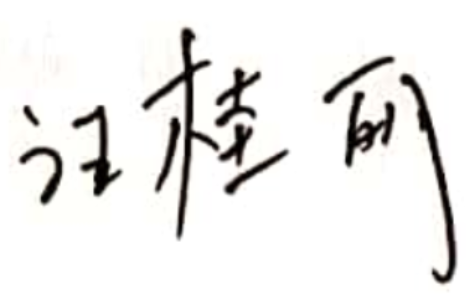 汪桂丽